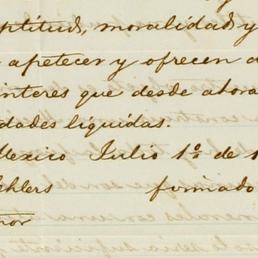 ptitud, moralidad y
apetecer y ofrecen
interes que desde ahora
dades liquidas.
Mexico Julio 1º de 1
ehlers firmado
nor